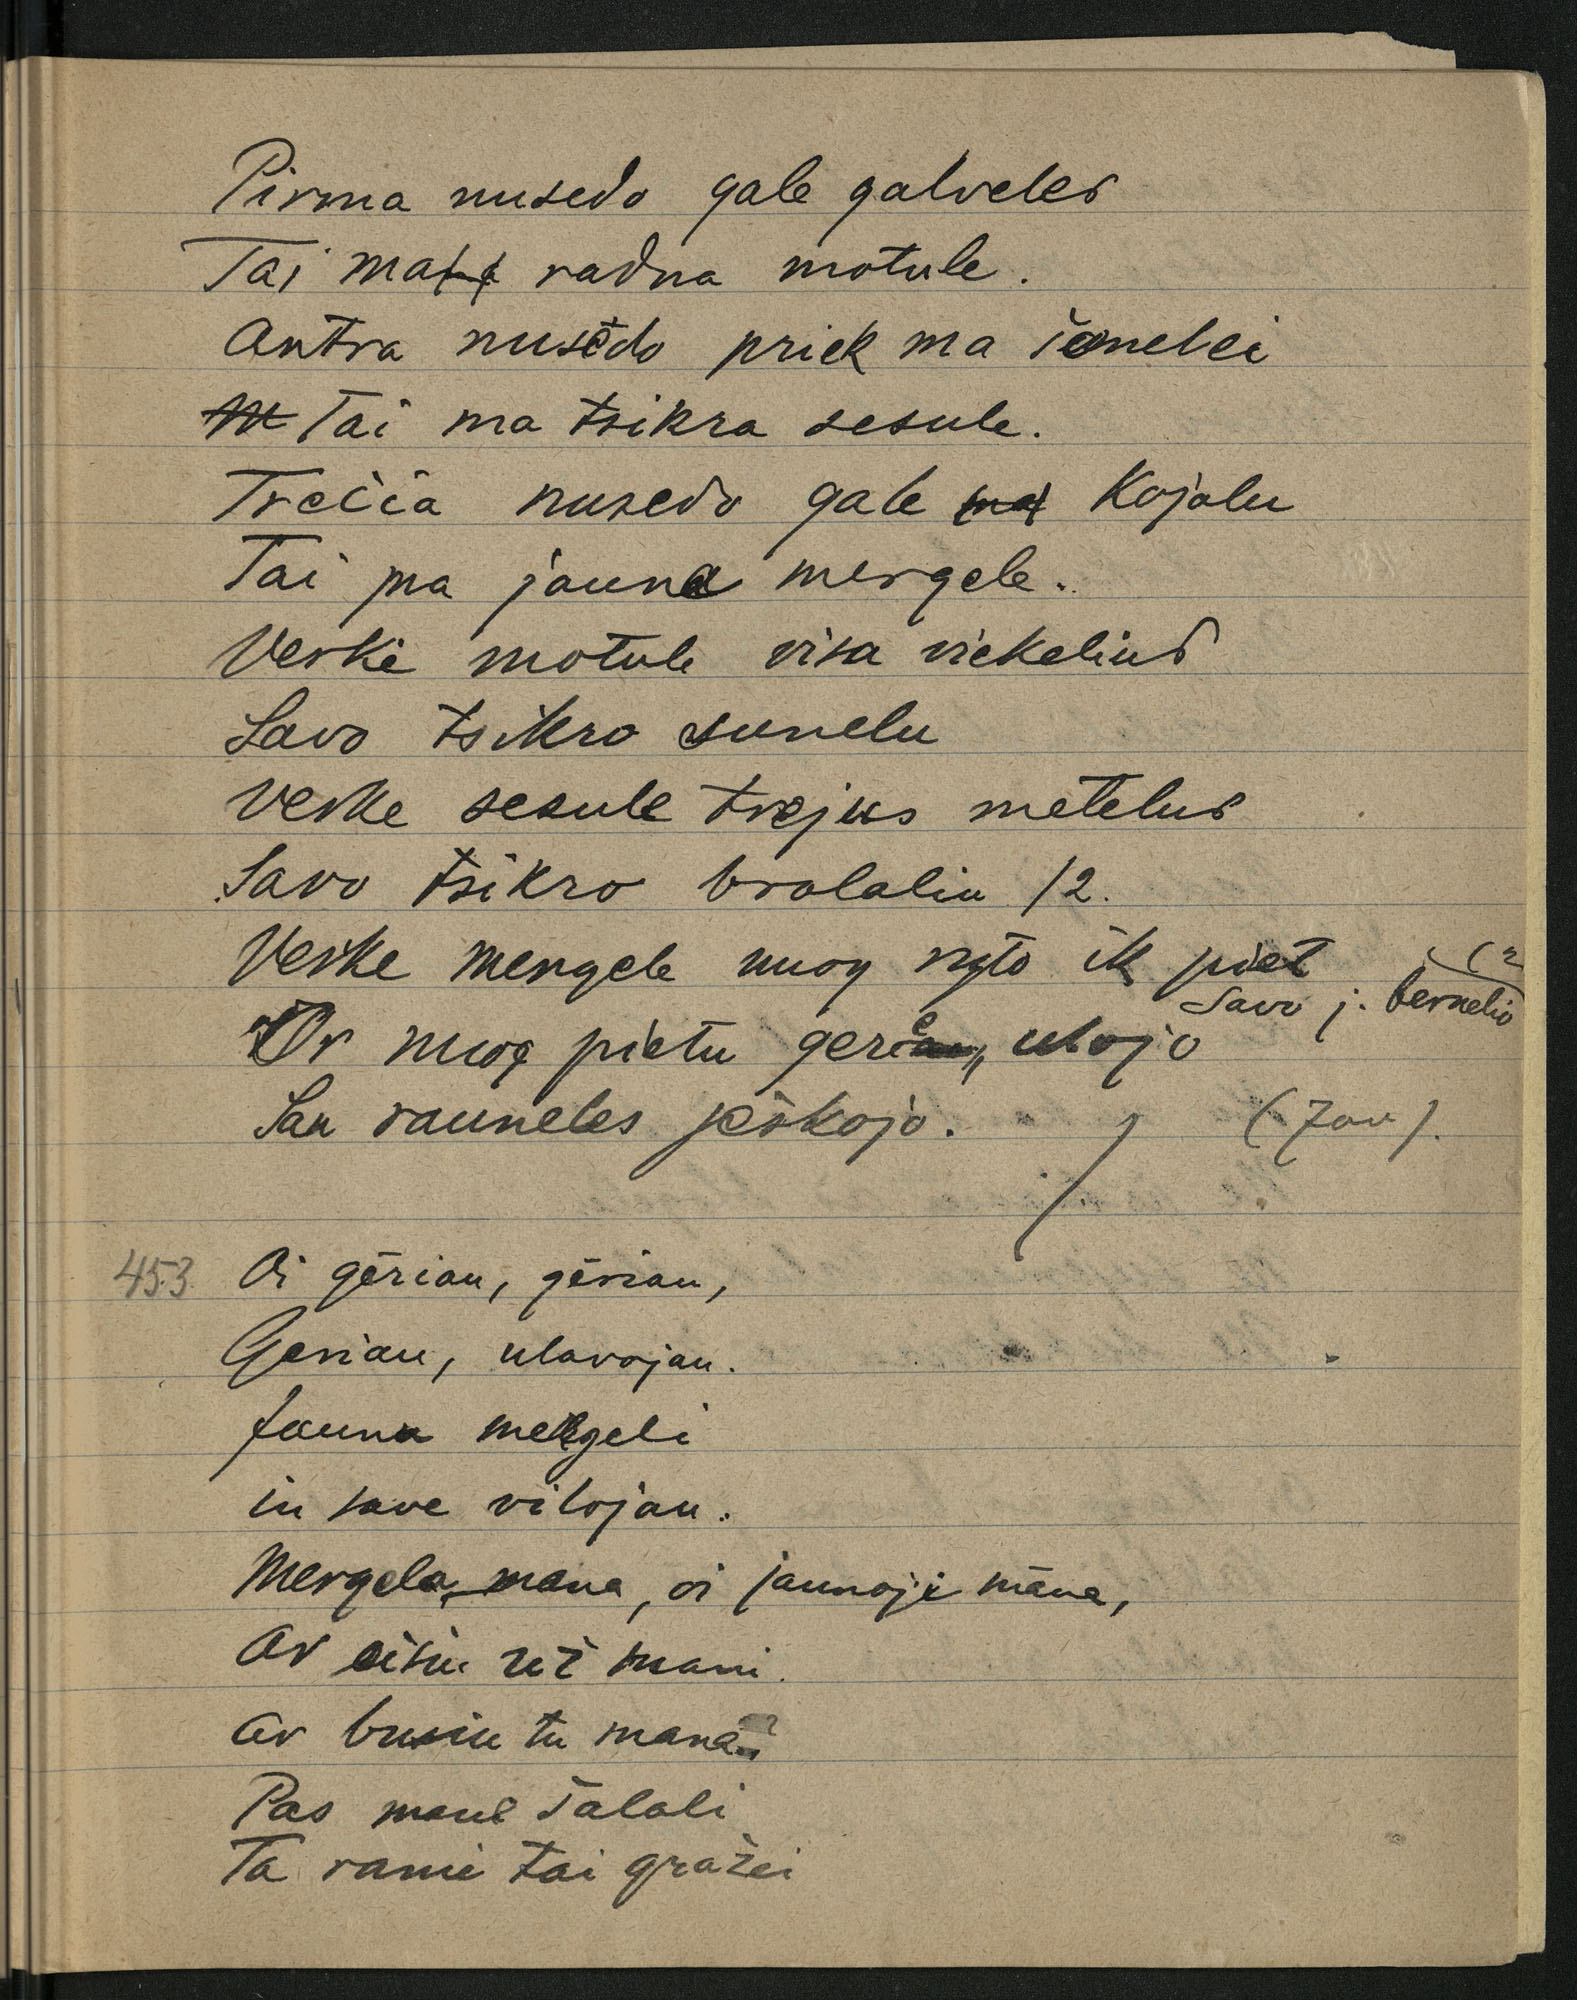 Pirma nusedo gale galveles
Tai ma radna motule.
Antra nusėdo priek ma šonelei
Tai ma tsikra sesule.
Trečia nusedo gale kojolu
Tai ma jauna mergele.
Verkė motule visa viekelius
Savo tsikro sunelu
Verke sesule trejus metelus
Savo tsikro brolaliu /2.
Verke mergele nuog ryto ik piet (2
Savo j. bernelio
Or nuog pietu gerė, ulojo
Sau rauneles jėškojo. (Jau).
453. Oi gėriau, gėriau,
Geriau, ulavojau.
Jauna mergeli
in save vilojau.
Mergela mana, oi jaunoji mana,
Ar eisiu už mani.
Ar busiu tu mana?
Pas mane šalali
Ta rami tai gražei